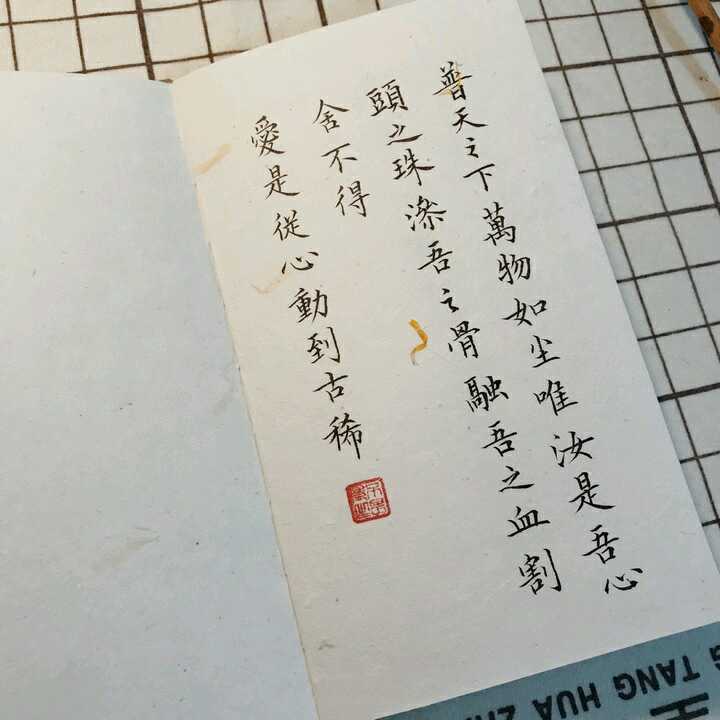 普天之下萬物如尘唯汝是吾心
頭之珠滲吾之骨融吾之血割
舍不得
愛是從心動到古稀
TANG HUA